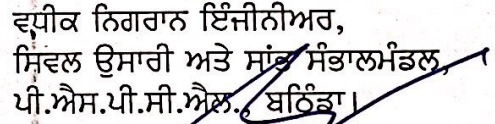 ਵਧੀਕ ਨਿਗਰਾਨ ਇੰਜੀਨੀਅਰ,
ਸਿਵਲ ਉਸਾਰੀ ਅਤੇ ਸਾਂਭ ਸੰਭਾਲਮੰਡਲ,
ਪੀ.ਐਸ.ਪੀ.ਸੀ.ਐਲ., ਬਠਿੰਡਾ।